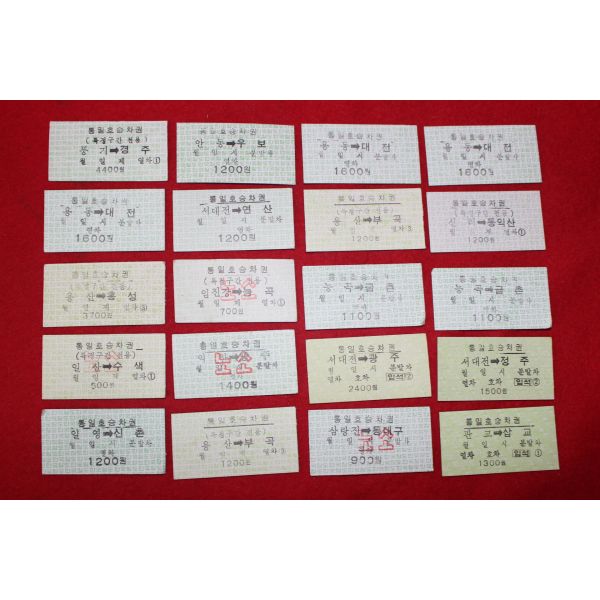 통일호승차권
(특정구간 전용)
풍기➡경주
월 일 제 열차①
4400원
통일호승차권
안동➡우보
월 일 시 분발차
열차
1200원
통일호승차권
➡대전
월 일 시 분발차
열차
1600원
통일호승차권
➡대전
월 일 시 분발차
열차
1600원
통일호승차권
➡대전
월 일 시 분발차
열차
1600원
통일호승차권
서대전➡연산
월 일 시 분발차
열차
1200원
통일호승차권
(특정구간 전용)
용산➡부곡
월 일 제 열차③
1200원
통일호승차권
(특정구간 전용)
➡동익산
월 일 제 열차①
1200원
통일호승차권
(특정구간 전용)
용산➡홍성
월 일 제 열차③
3700원
통일호승차권
(특정구간 전용)
임진강➡능곡
월 일 제 열차①
700원
통일호승차권
능곡➡금촌
월 일 시 분발차
열차
1100원
통일호승차권
능곡➡금촌
월 일 시 분발차
열차
1100원
통일호승차권
(특정구간 전용)
일산➡수색
월 일 제 열차①
500원
통일호승차권
월 일 시 분발차
열차
1400원
통일호승차권
서대전➡광주
월 일 시 분발차
열차 호차 입석②
2400원
통일호승차권
서대전➡정주
월 일 시 분발차
열차 호차 입석②
1500원
통일호승차권
일영➡신촌
월 일 시 분발차
열차
1200원
통일호승차권
(특정구간 전용)
용산➡부곡
월 일 제 열차③
1200원
통일호승차권
삼랑진➡동대구
월 일 시 분발차
열차
900원
통일호승차권
판교➡삽교
월 일 시 분발차
열차 호차 입석①
1300원